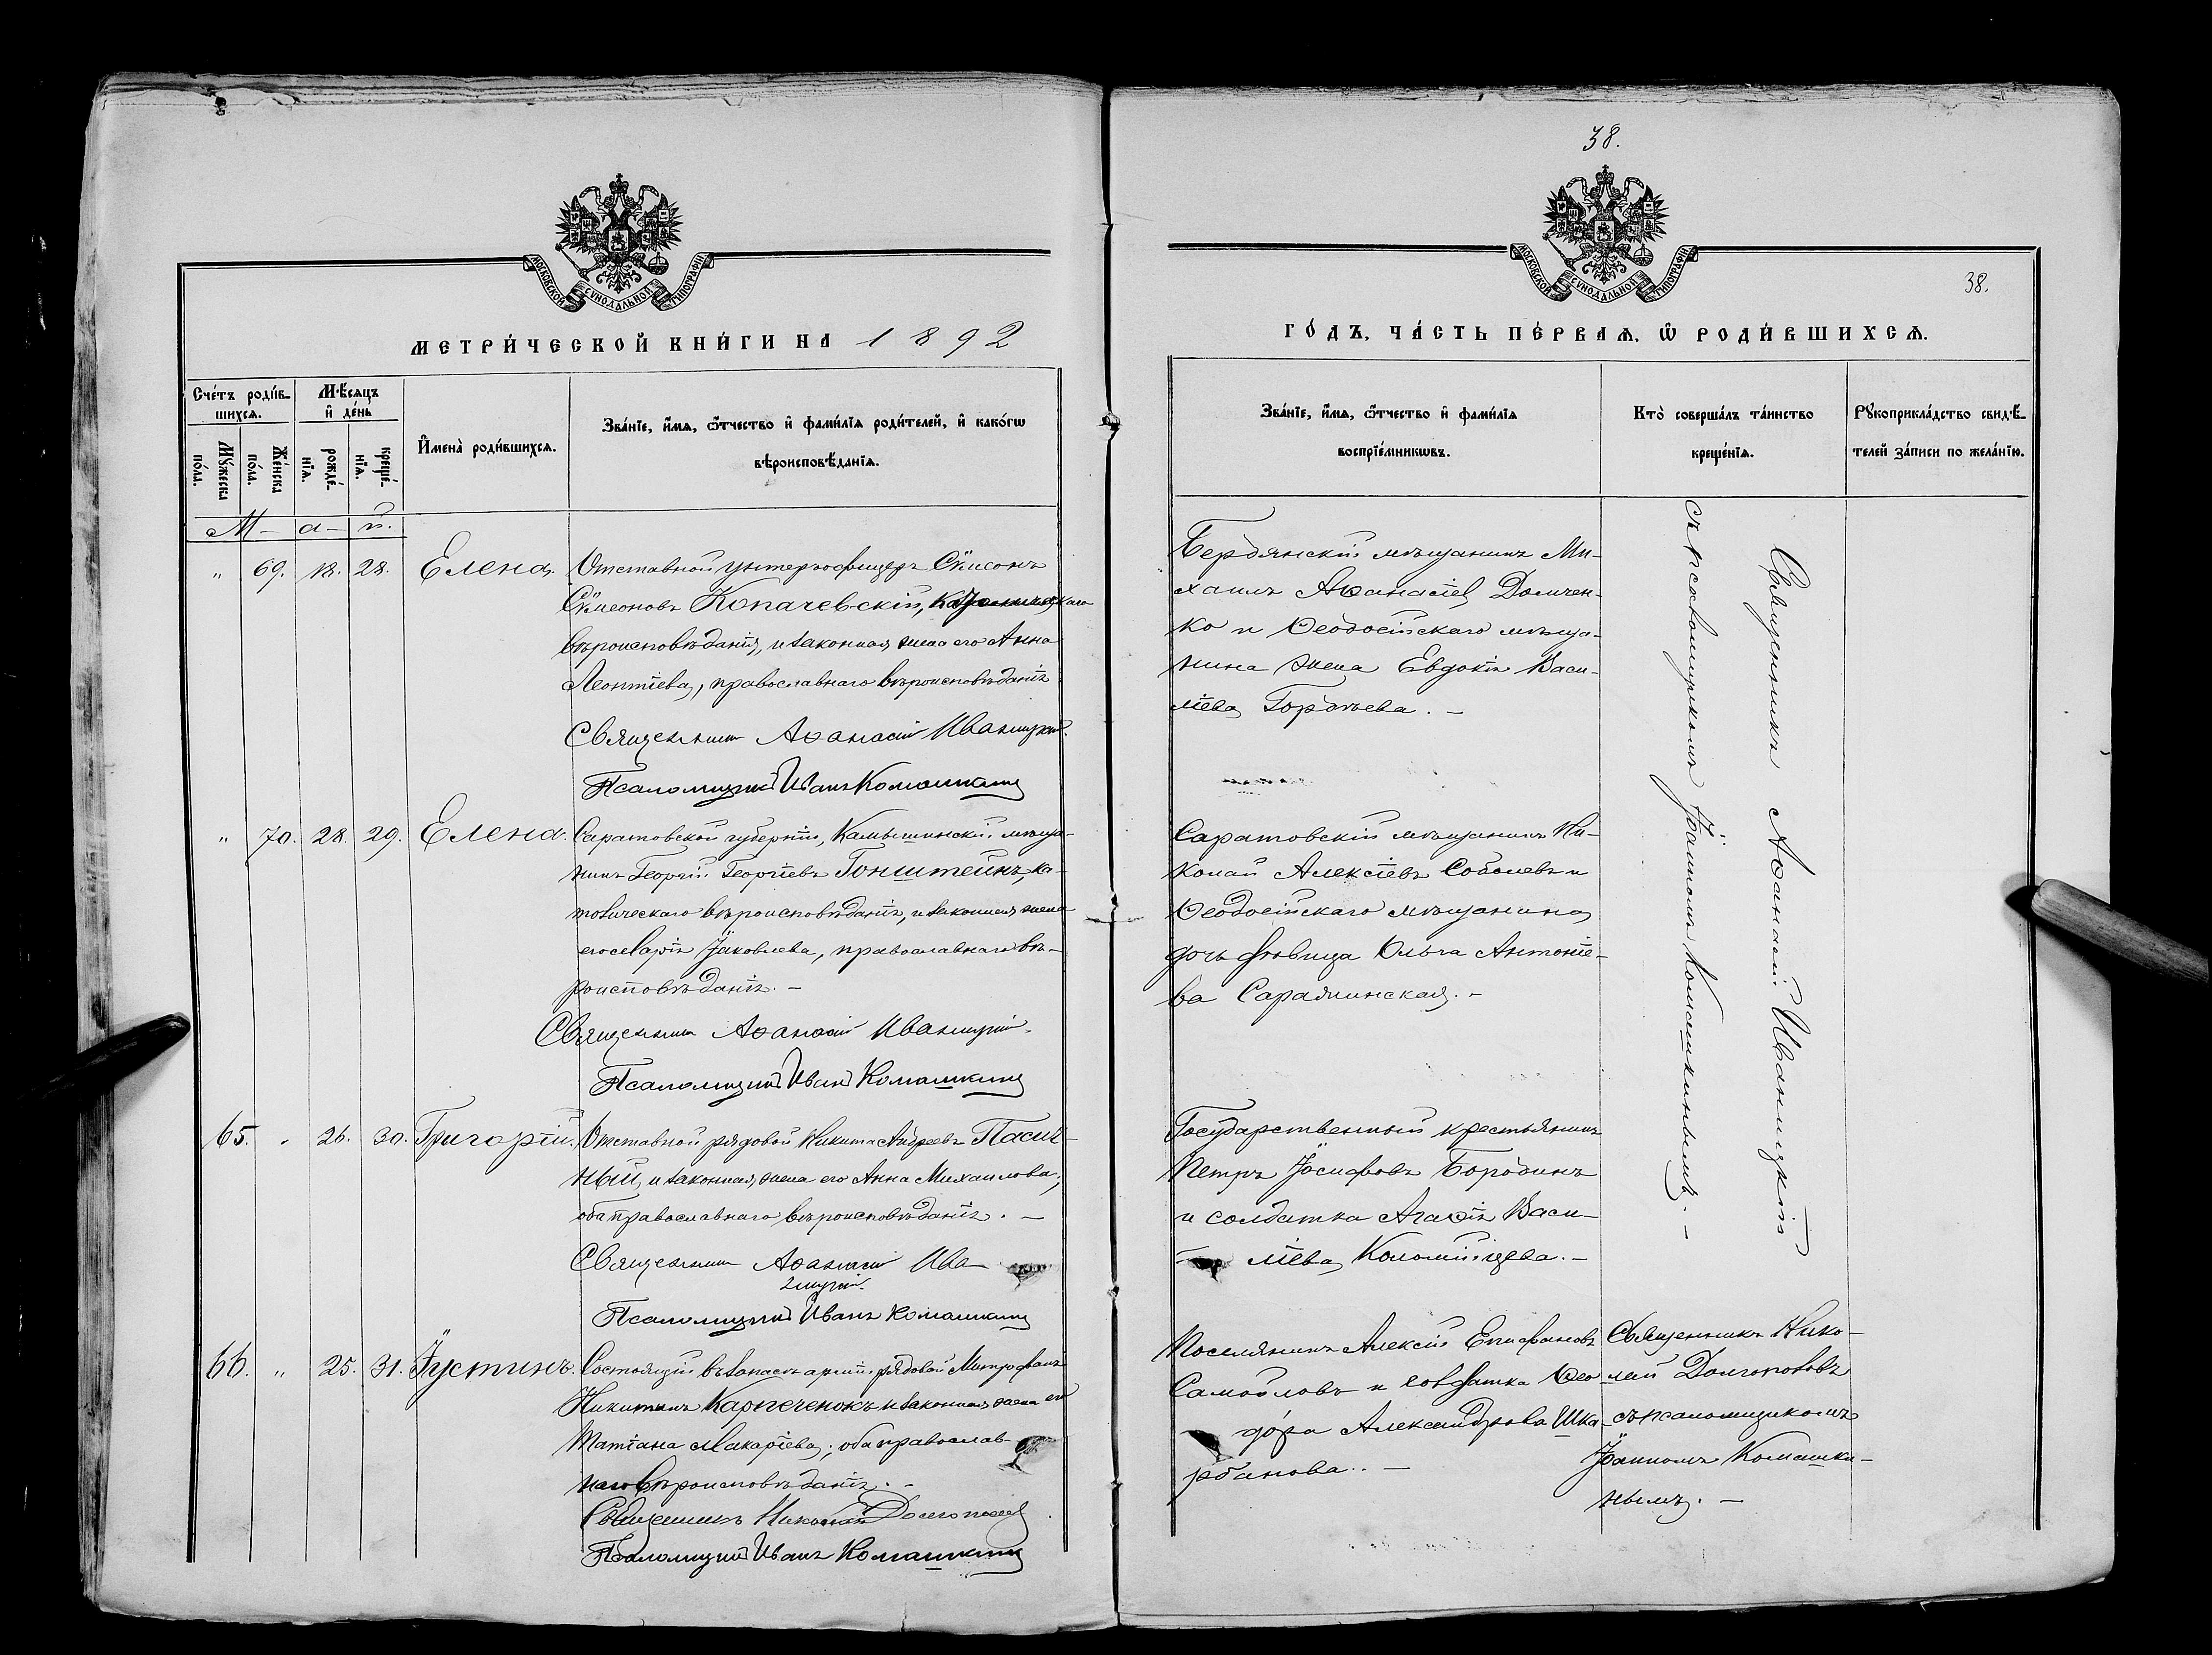 МОСКОВСКОЙ СѴНОДАЛЬНОЙ ТИПОГРАФІИ
МЕТРИ́ЧЕСКОЙ КНИ́ГИ НА 1892
Сче́тъ роди́в-
шихсѧ.
Мѣ́сѧцъ
и҆ де́нь
Мꙋ́жеска
по́ла.
Же́нска
по́ла.
рожде́-
нїѧ.
креще́-
нїѧ.
И҆мена̀ роди́вшихсѧ.
Зва́нїе, и҆́мѧ, ѻ҆́тчество и҆ фами́лїѧ роди́телей, и҆ како́гѡ
вѣроисповѣ́данїѧ.
М - а - й.
" 69. 18. 28. Елена.
Отставной унтеръ-офицеръ Сѵмеонъ
Сѵмеоновъ Копачевскій, католическаго
вѣроисповѣданія, и законная жена его Анна
Леонтіева, православнаго вѣроисповѣданія
Священникъ Аѳанасій Иваницкій.
Псаломщикъ Иванъ Комашкинъ
" 70. 28. 29. Елена.
Саратовской губерніи, Камышинскій мѣща-
нинъ Георгій Георгіевъ Гонштейнъ, ка-
толическаго вѣроисповѣданія, и законная жена
его Марія Іаковлева, православнаго вѣ-
роисповѣданія. -
Священникъ Аѳанасій Иваницкій.
Псаломщикъ Иванъ Комашкинъ
65. " 26. 30. Григорій.
Отставной рядовой Никита Андреевъ Пасич-
ный, и законная жена его Анна Михаилова;
оба православнаго вѣроисповѣданія. -
Священникъ Аѳанасій Ива-
ницкій.
Псаломщикъ Иванъ Комашкинъ
66. " 25. 31. Іустинъ.
Состоящій въ запасѣ арміи рядовой Митрофанъ
Никитинъ Карпеченокъ и законная жена его
Татіана Макаріева; оба православ-
наго вѣроисповѣданія. -
Священникъ Николай Долгополовъ
Псаломщикъ Иванъ Комашкинъ
38.
МОСКОВСКОЙ СѴНОДАЛЬНОЙ ТИПОГРАФІИ
38.
ГО́ДЪ, ЧА́СТЬ ПЕ́РВАѦ, Ѡ҆ РОДИ́ВШИХСѦ.
Зва́нїе, и҆́мѧ, ѻ҆́тчество и҆ фами́лїѧ
воспрїе́мникѡвъ.
Кто̀ соверша́лъ та́инство
креще́нїѧ.
Рꙋкоприкла́дство свидѣ́-
телей за́писи по жела́нїю.
Бердянскій мѣщанинъ Ми-
хаилъ Аѳанасіевъ Домчен-
ко и Ѳеодосійскаго мѣща-
нина жена Евдокія Васи-
ліева Гордѣева. -
Саратовскій мѣщанинъ Ни-
колай Алексіевъ Соболевъ и
Ѳеодосійскаго мѣщанина
дочь дѣвица Ольга Антоніе-
ва Сараминская. -
Государственный крестьянинъ
Петръ Іосифовъ Бородинъ
и солдатка Агаѳія Васи-
ліева Коломійцева. -
Поселянинъ Алексій Епифановъ
Самойловъ и солдатка Ѳео
дора Александрова Шка
рбанова. -
Священникъ Аѳанасій Иваницкій
съ псаломщикомъ Іоанномъ Комашкинымъ. -
Священникъ Нико-
лай Долгополовъ
съ псаломщикомъ
Іоанномъ Комашки-
нымъ. -